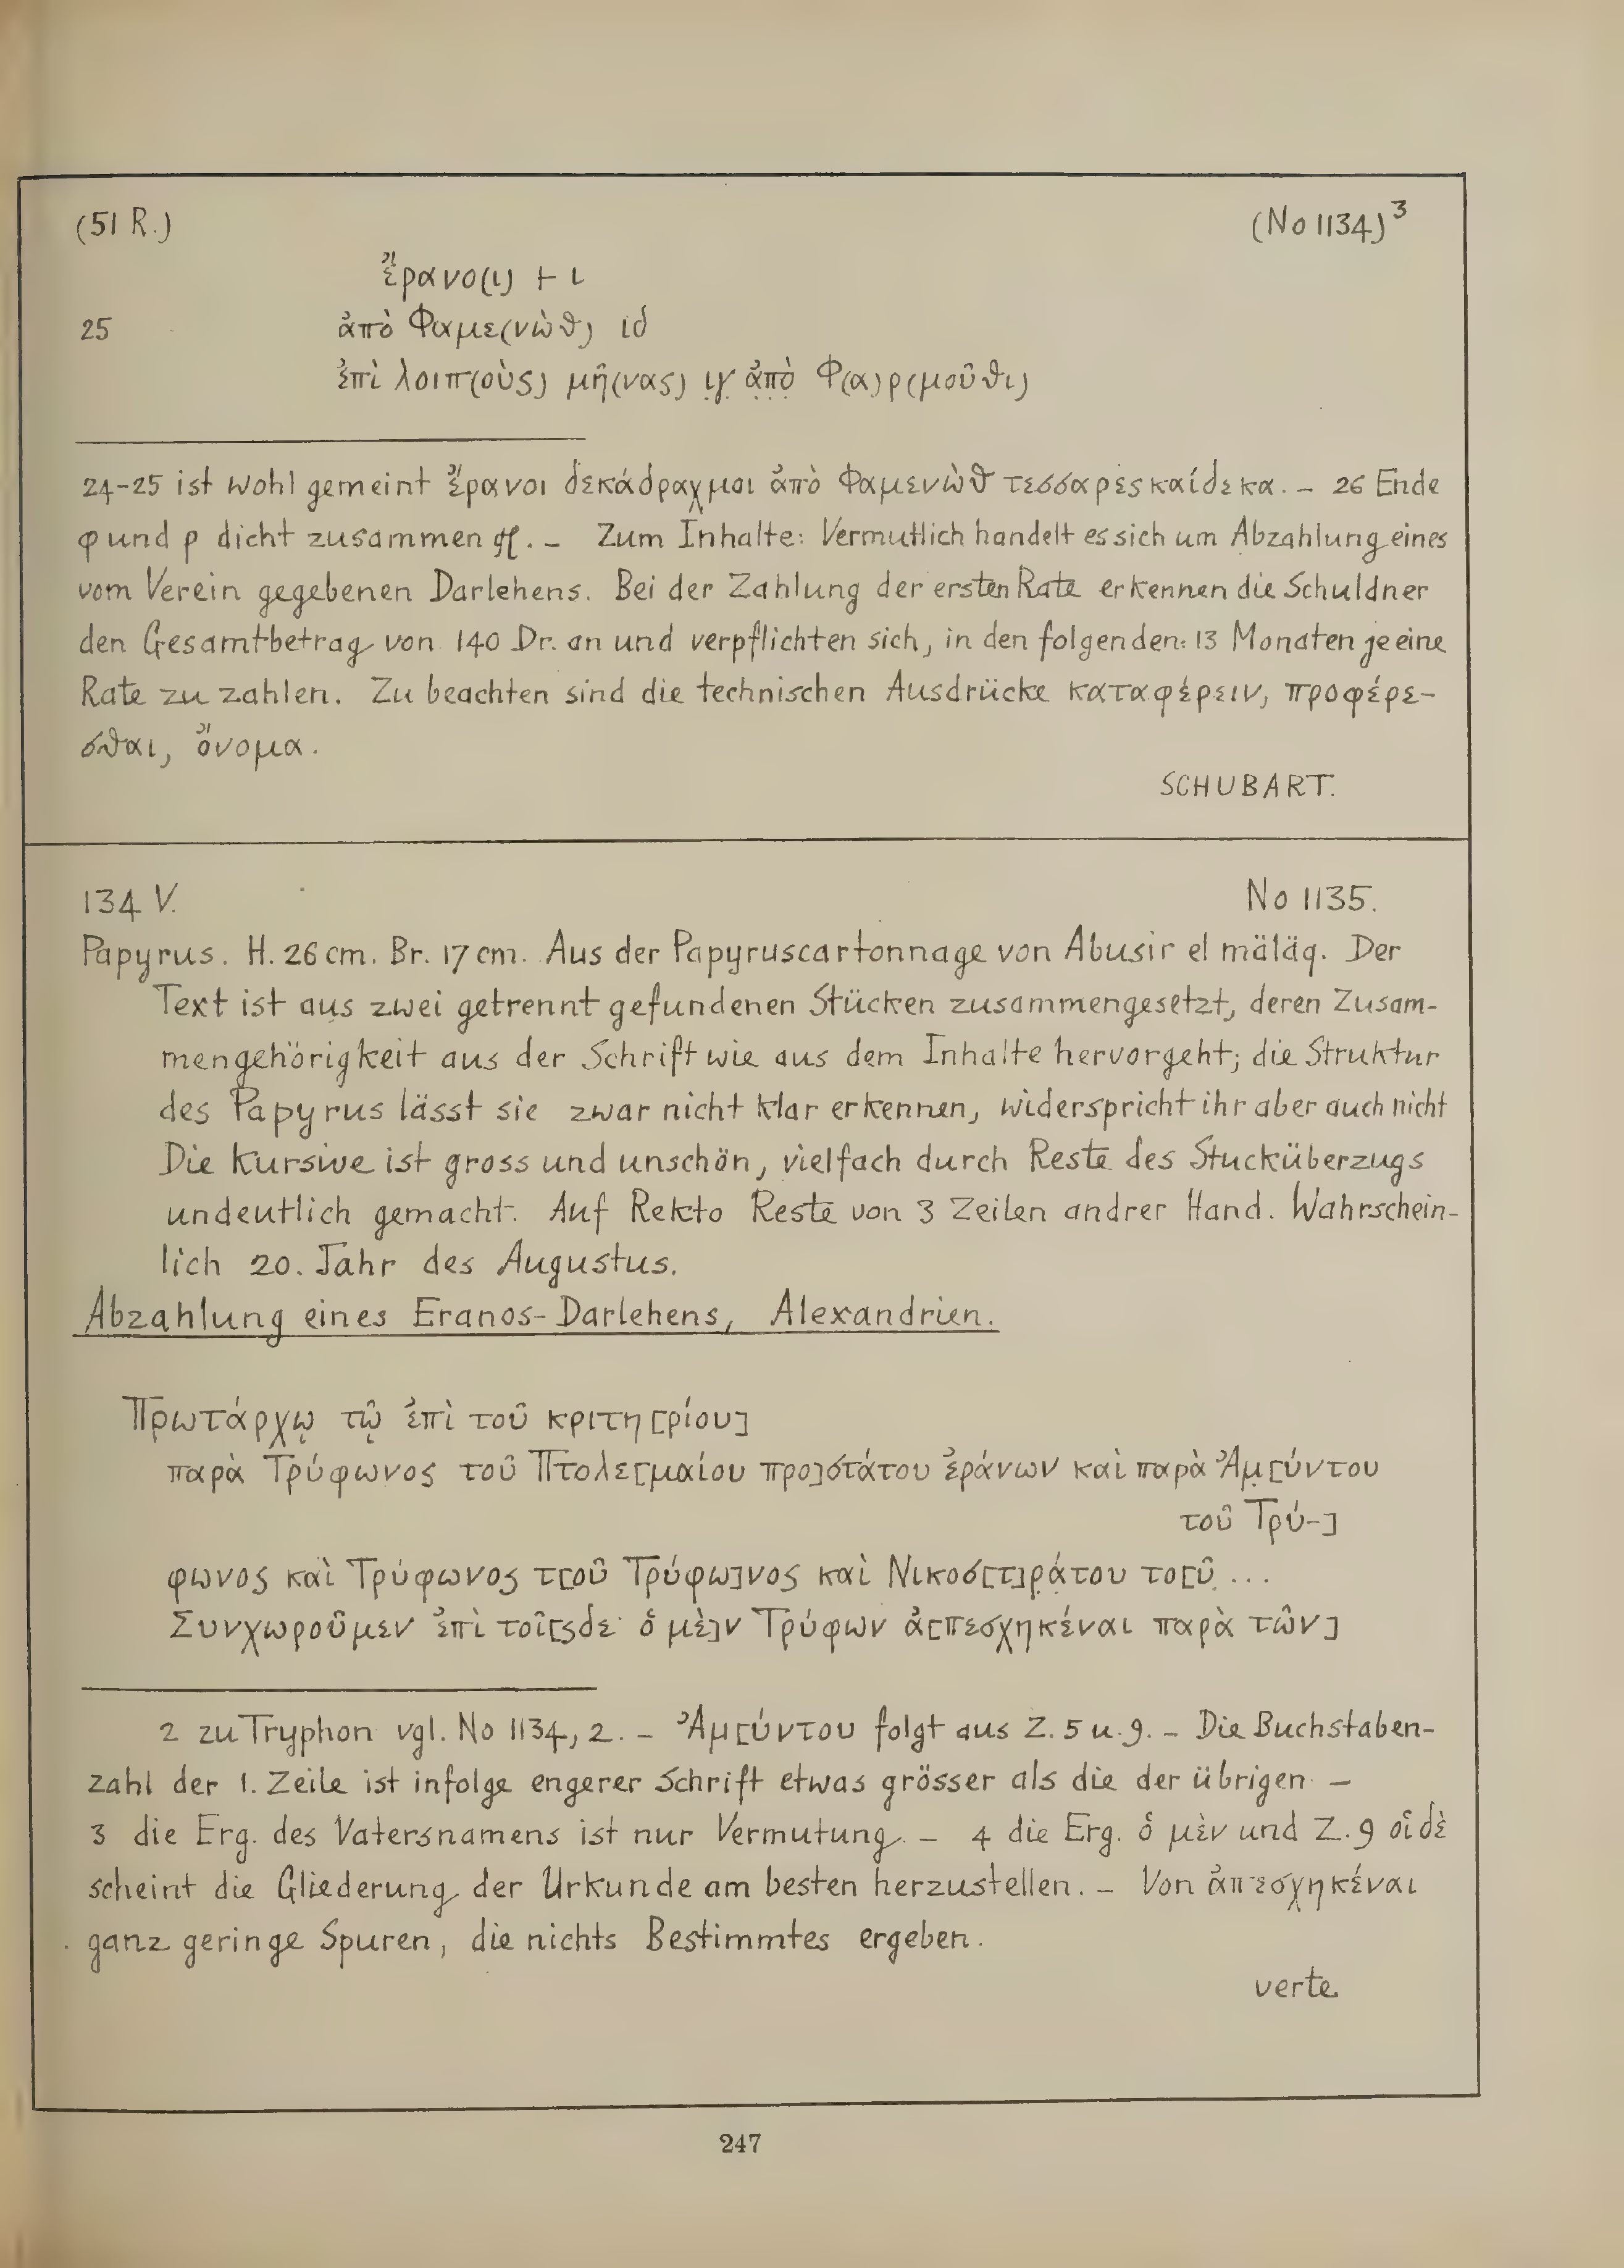 (51 R.) (No 1134)³
ἔρανο(ι) ⊢ ι
25 ἀπὸ Φαμε(νὼθ) ιδ
ἐπὶ λοιπ(οὺς) μῆ(νας) ι̣γ̣ ἀ̣π̣ὸ̣ Φ(α)ρ(μοῦθι)
24-25 ist wohl gemeint ἔρανοι δεκάδραχμοι ἀπὸ Φαμενὼθ τεσσαρεςκαίδεκα. – 26 Ende
φ und ρ dicht zusammen. – Zum Inhalte: Vermutlich handelt es sich um Abzahlung eines
vom Verein gegebenen Darlehens. Bei der Zahlung der ersten Rate erkennen die Schuldner
den Gesamtbetrag von 140 Dr. an und verpflichten sich, in den folgenden 13 Monaten je eine
Rate zu zahlen. Zu beachten sind die technischen Ausdrücke καταφέρειν, προφέρε-
σθαι, ὄνομα.
SCHUBART.
134 V. No 1135.
Papyrus. H. 26 cm. Br. 17 cm. Aus der Papyruscartonnage von Abusir el mäläq. Der
Text ist aus zwei getrennt gefundenen Stücken zusammengesetzt, deren Zusam-
mengehörigkeit aus der Schrift wie aus dem Inhalte hervorgeht; die Struktur
des Papyrus lässt sie zwar nicht klar erkennen, widerspricht ihr aber auch nicht
Die Kursive ist gross und unschön, vielfach durch Reste des Stucküberzugs
undeutlich gemacht. Auf Rekto Reste von 3 Zeilen andrer Hand. Wahrschein-
lich 20. Jahr des Augustus.
Abzahlung eines Eranos-Darlehens, Alexandrien.
Πρωτάρχῳ τῷ ἐπὶ τοῦ κριτη[ρίου]
παρὰ Τρύφωνος τοῦ Πτολε[μαίου προ]στάτου ἐράνων καὶ παρὰ Ἀμ̣[ύντου
τοῦ Τρύ-]
φωνος καὶ Τρύφωνος τ[οῦ Τρύφω]νος καὶ Νικοσ[τ]ρ̣ά̣του το[ῦ ...
Συνχωροῦμεν ἐπὶ τοῖ[ςδε· ὁ μὲ]ν Τρύφων ἀ[πεσχηκέναι παρὰ τῶν]
2 zu Tryphon vgl. No 1134, 2. – Ἀμ[ύντου folgt aus Z. 5 u. 9. – Die Buchstaben-
zahl der 1. Zeile ist infolge engerer Schrift etwas grösser als die der übrigen –
3 die Erg. des Vatersnamens ist nur Vermutung. – 4 die Erg. ὁ μὲν und Z. 9 οἱ δὲ
scheint die Gliederung der Urkunde am besten herzustellen. – Von ἀπεσχηκέναι
ganz geringe Spuren, die nichts Bestimmtes ergeben.
verte
247